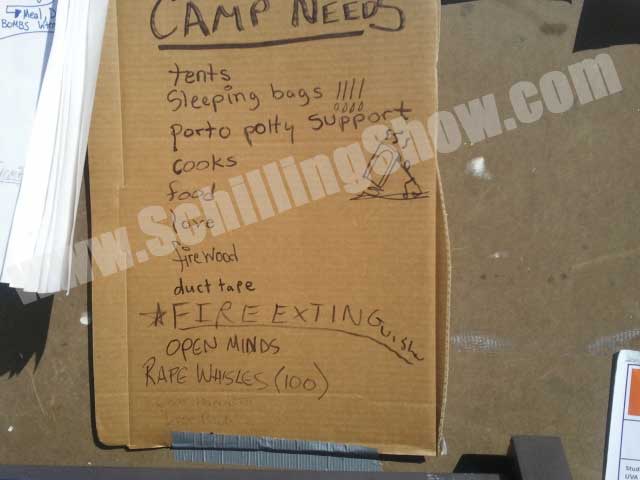 Meal,
BOMBS
CAMP NEEDS
tents
Sleeping bags !!!!
porto potty support
cooks
food
love
firewood
duct tape
★ FIRE EXTINGuishe
OPEN MINDS
RAPE WHISLES (100)
www.SchillingShow.com
Stud
UVA